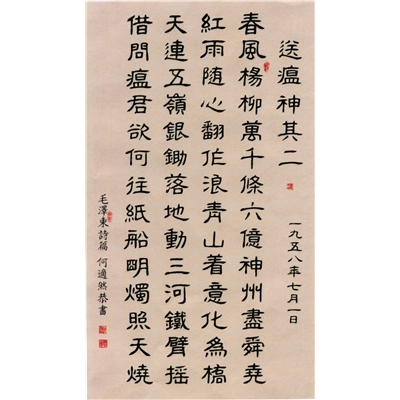 送瘟神其二
一九五八年七月一日
春風楊柳萬千條六億神州盡舜堯
紅雨随心翻作浪青山着意化為橋
天連五嶺銀鋤落地動三河鐵臂摇
借問瘟君欲何往紙船明燭照天燒
毛澤東詩篇 何適然恭書